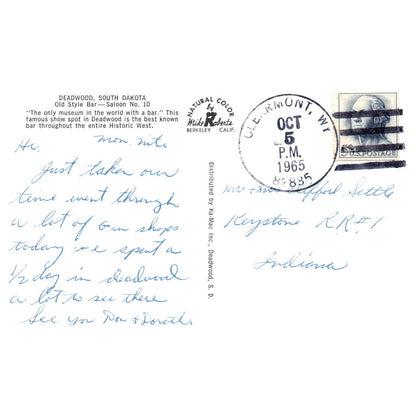 DEADWOOD, SOUTH DAKOTA
Old Style Bar—Saloon No. 10
"The only museum in the world with a bar." This
famous show spot in Deadwood is the best known
bar throughout the entire Historic West.
NATURAL COLOR
by
Mike Roberts
BERKELEY, CALIF.
Distributed by Ka-Mac Inc., Deadwood, S. D.
CLEARMONT, WY
OCT
5
P.M.
1965
82835
U.S. POSTAGE
Hi. Mon nite
Just taken our
time went through
a lot of Gun shops
today we spent a
1/2 day in deadwood
a lot to see there
See you Don & Dorothy
Mr & Mrs Clifford Settle
Keystone R R #1
Indiana